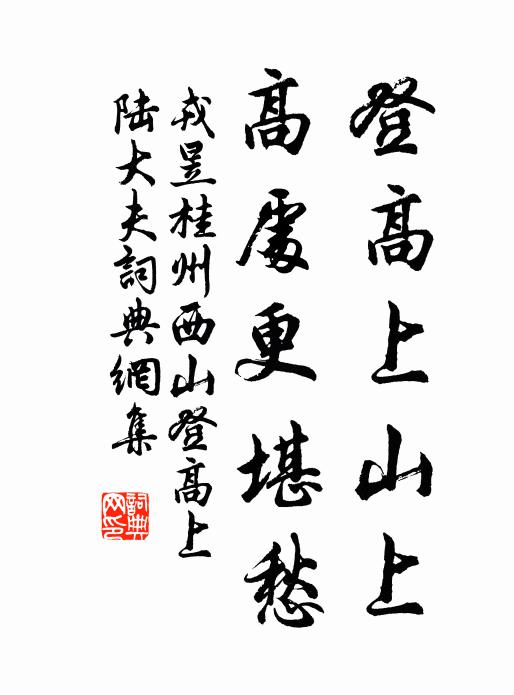 登高上山上
高處更堪愁
戎昱桂州西山登高上
陸大夫詞典網集
詞典
网印